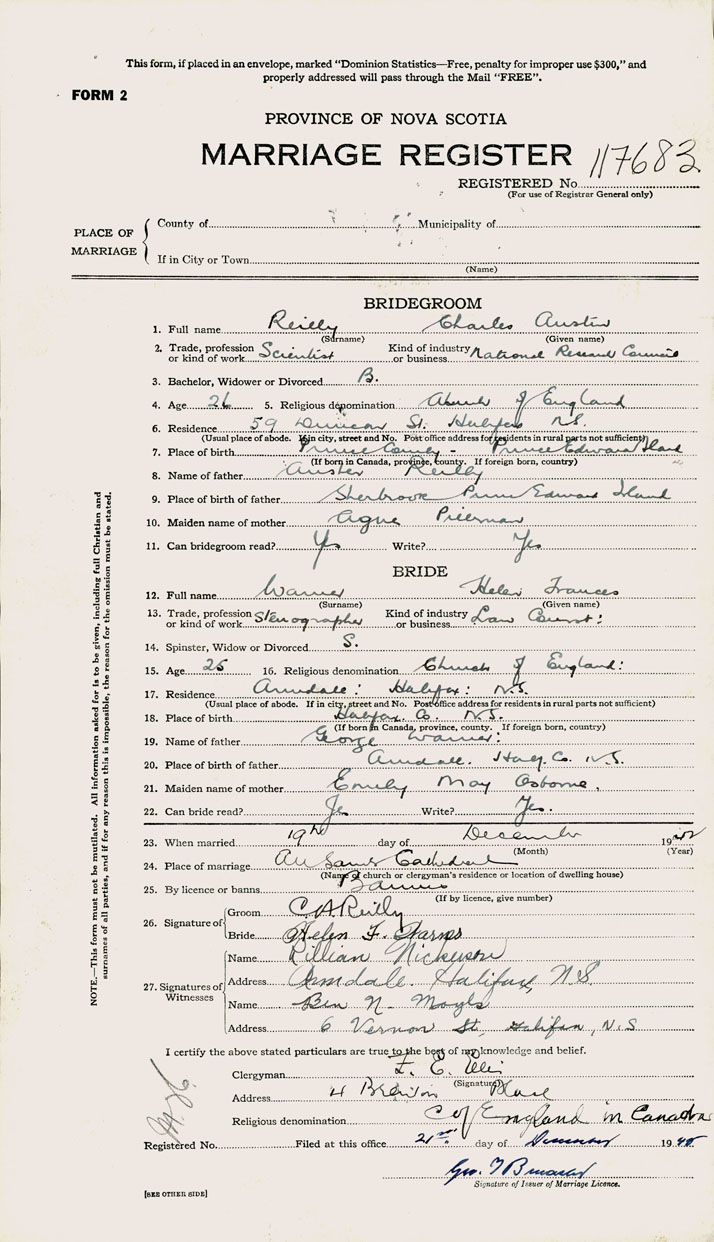 This form, if placed in an envelope, marked “Dominion Statistics—Free, penalty for improper use $300,” and
properly addressed will pass through the Mail “FREE”.
FORM 2
PROVINCE OF NOVA SCOTIA
MARRIAGE REGISTER 117683
REGISTERED No.
(For use of Registrar General only)
PLACE OF MARRIAGE
County of Municipality of
If in City or Town
(Name)
BRIDEGROOM
1. Full name Reilly Charles Austin
(Surname) (Given name)
2. Trade, profession or kind of work Scientist Kind of industry or business National Research Council
3. Bachelor, Widower or Divorced B.
4. Age 26 5. Religious denomination Church of England
6. Residence 59 Duncan St. Halifax N.S.
(Usual place of abode. If in city, street and No. Post office address for residents in rural parts not sufficient)
7. Place of birth Prince County - Prince Edward Island
(If born in Canada, province, county. If foreign born, country)
8. Name of father Austin Reilly
9. Place of birth of father Sherbrook Prince Edward Island
10. Maiden name of mother
11. Can bridegroom read? Yes Write? Yes
BRIDE
12. Full name Helen Frances
(Surname) (Given name)
13. Trade, profession or kind of work Stenographer Kind of industry or business Law Court:
14. Spinster, Widow or Divorced S.
15. Age 25 16. Religious denomination Church of England:
17. Residence Armdale: Halifax: N.S.
(Usual place of abode. If in city, street and No. Post office address for residents in rural parts not sufficient)
18. Place of birth Halifax Co. N.S.
(If born in Canada, province, county. If foreign born, country)
19. Name of father George
20. Place of birth of father Armdale. Co. N.S.
21. Maiden name of mother Emily May Osborne,
22. Can bride read? Yes Write? Yes.
23. When married 19th day of December 19
(Month) (Year)
24. Place of marriage All Saints Cathedral
(Name of church or clergyman's residence or location of dwelling house)
25. By licence or banns Banns
(If by licence, give number)
26. Signature of
Groom C.A. Reilly
Bride Helen F.
27. Signatures of Witnesses
Name Lillian Nickerson
Address Armdale. Halifax, N.S.
Name Ben N.
Address 6 Vernon St, Halifax, N.S
I certify the above stated particulars are true to the best of my knowledge and belief.
Clergyman
(Signature)
Address
Religious denomination C of England in Canada
Registered No. Filed at this office 21st day of December 19
Signature of Issuer of Marriage Licence.
[SEE OTHER SIDE]
NOTE.—This form must not be mutilated. All information asked for is to be given, including full Christian and
surnames of all parties, and if for any reason this is impossible, the reason for the omission must be stated.